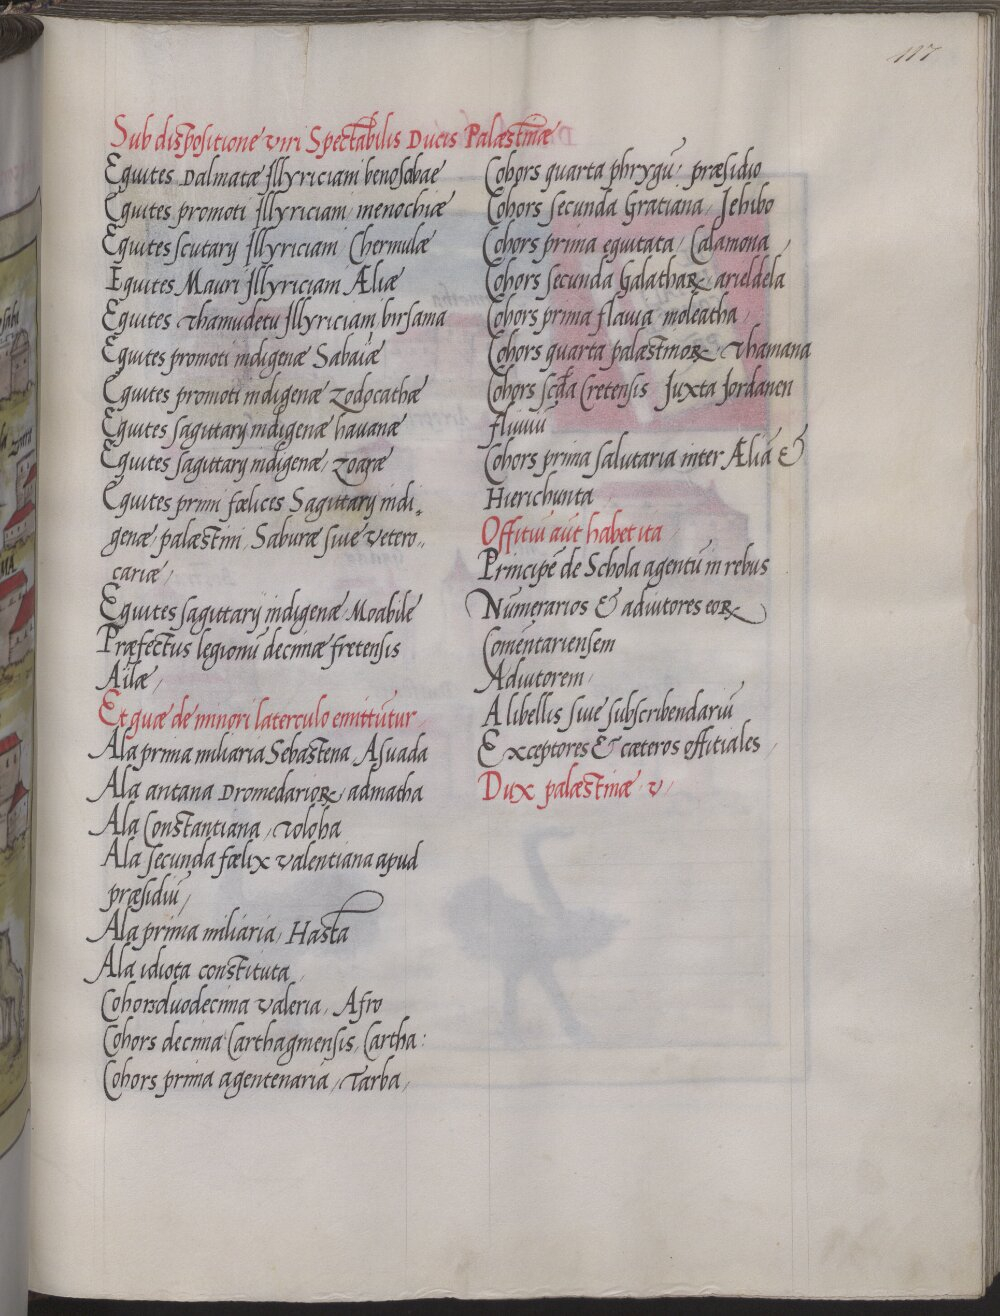 117
Sub dispositione viri Spectabilis Ducis Palæstinæ
Equites Dalmatæ Illyriciani benosabæ
Equites promoti Illyriciani, menochiæ
Equites scutarij Illyriciani Chermulæ
Equites Mauri Illyriciani Æliæ
Equites thamudeni Illyriciani birsama
Equites promoti indigenæ Sabaiæ
Equites promoti indigenæ zodocathæ
Equites sagittarij indigenæ hauanæ
Equites sagittarij indigenæ, zoaræ
Equites primi fœlices Sagittarij indi,,
genæ, palæstini, Saburæ siue vetero,,
cariæ,
Equites sagittarij indigenæ, Moabile
Præfectus legionũ decimæ fretensis
Ailæ,
Et quæ de minori laterculo emittũtur
Ala prima miliaria Sebastena, Asuada
Ala antana Dromedarioꝝ, admatha
Ala Constantiana, toloha
Ala secunda fœlix valentiana apud
præsidiũ,
Ala prima miliaria, Hasta
Ala idiota constituta
Cohors duodecima valeria, Afro
Cohors decima Carthaginensis, Cartha:
Cohors prima agentenaria, tarba,
Cohors quarta phrygũ, præsidio
Cohors secunda Gratiana, Jehibo
Cohors prima equitata, Calamona,
Cohors secunda Galathaꝝ, arieldela
Cohors prima flauia, moleatha,
Cohors quarta palæstinoꝝ, thamana
Cohors scd̃a Cretensis Juxta Jordanen
fluuiũ
Cohors prima salutaria inter Æliã &
Hierichunta
Offitiũ aũt habet ita
Principẽ de Schola agentũ in rebus
Nũmerarios & adiutores eoꝝ
Com̃entariensem
Adiutorem,
A libellis siue subscribendariũ
Exceptores & cæteros offitiales,
Dux palæstinæ v,